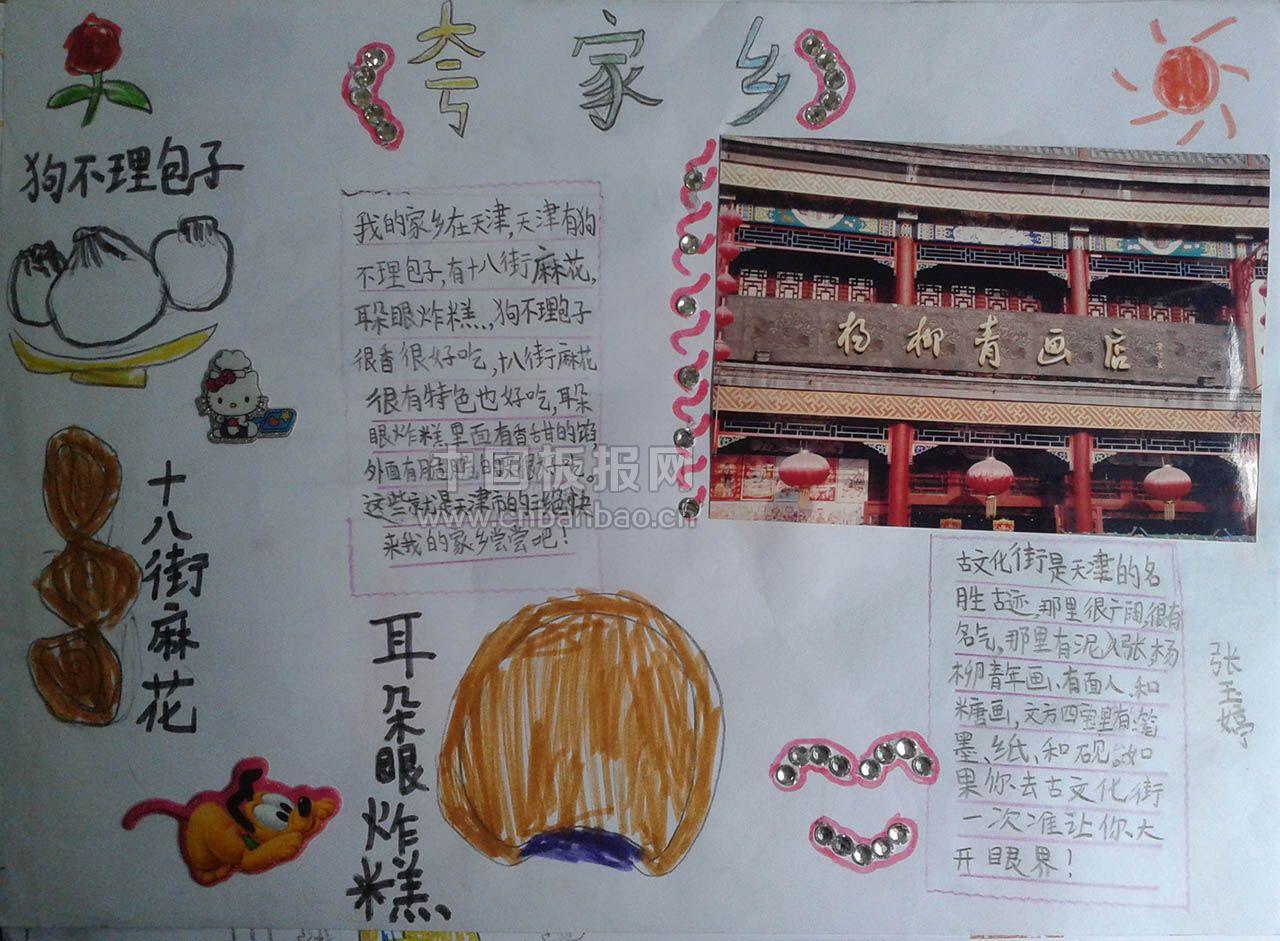 夸家乡
狗不理包子
我的家乡在天津,天津有狗
不理包子,有十八街麻花,
耳朵眼炸糕,狗不理包子
很香很好吃,十八街麻花
很有特色也好吃,耳朵
眼炸糕里面有香甜的馅
外面有脆脆的皮很好吃。
这些就是天津市的三绝快
来我的家乡尝尝吧!
杨柳青画店
十八街麻花
耳朵眼炸糕
古文化街是天津的名
胜古迹,那里很广阔,很有
名气,那里有泥人张、杨
柳青年画、有面人、和
糖画,文方四宝里有:笔
墨、纸、和砚。如
果你去古文化街
一次准让你大
开眼界!
张玉婷
中国板报网
www.chbanbao.cn